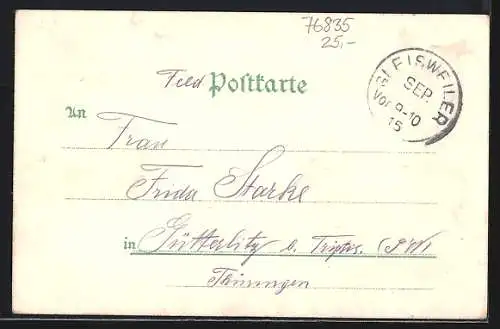 76835
25,-
GLEISWEILER
SEP.
Vor 9-10
15
Feld Postkarte
An Frau
Frida Starke
in Gütterlitz b. Triptis. (S.W.)
Thüringen